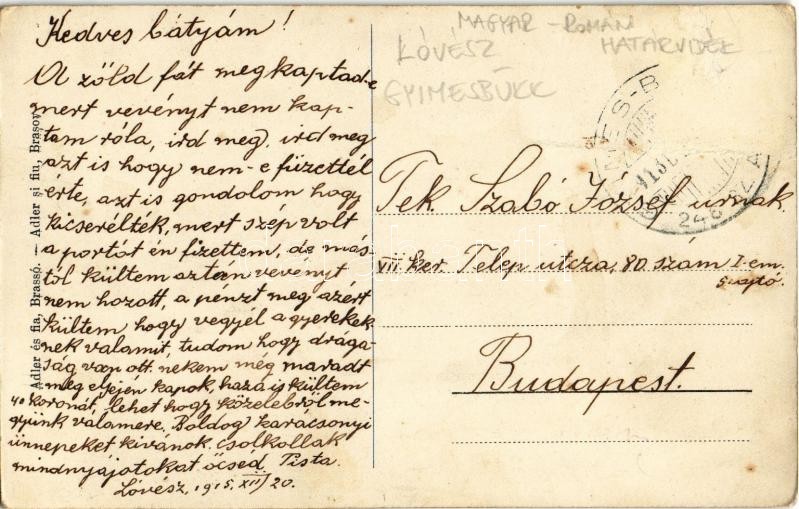 Kedves bátyám!
A zöld fát megkaptad-e
mert vevényt nem kap-
tam róla, ird meg, ird meg
azt is hogy nem-e füzettél
érte, azt is gondolom hogy
kicserélték, mert szép volt
a portót én fizettem, de más-
tól kültem aztán vevényt
nem hozott, a pénzt meg azért
kültem hogy vegyél a gyerekek-
nek valamit, tudom hogy drága-
ság van ott. nekem még maradt
meg elsején kapok, haza is kültem
40 koronát, lehet hogy közelebről me-
gyünk valamere. Boldog karácsonyi
ünnepeket kivánok. Csólkollak
mindnyájotokat öcsed Pista.
Lóvész, 1915. XII/20.
Adler és fia, Brassó. — Adler și fiu, Brașov
MAGYAR - ROMÁN
HATÁRVIDÉK
LÓVÉSZ
GYIMESBÜKK
248
Tek. Szabó József urnak.
VII ker. Telep utcza, 80. szám I-em.
5 ajtó.
Budapest.